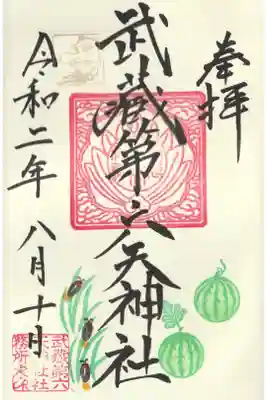 奉拝
武蔵第六天神社
令和二年 八月十日
武蔵第六
天神社
務所之印